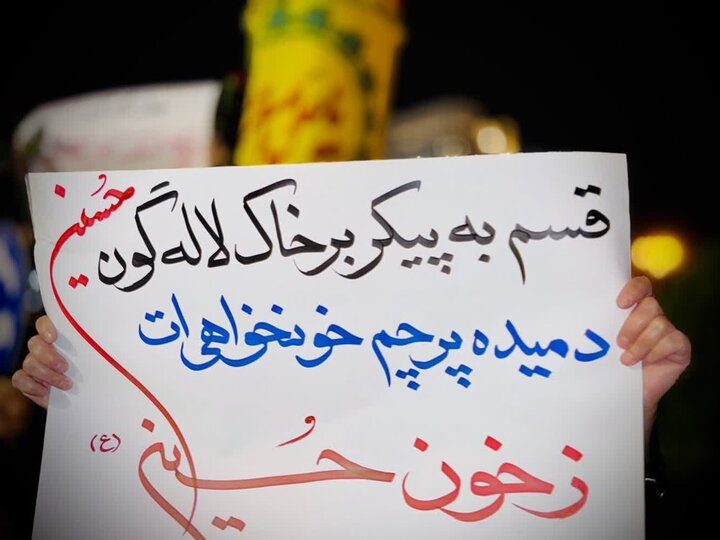 قسم به پیکر بر خاک لاله گون حُسین
دمیده پرچم خونخواهی ات
ز خون حُسین (ع)